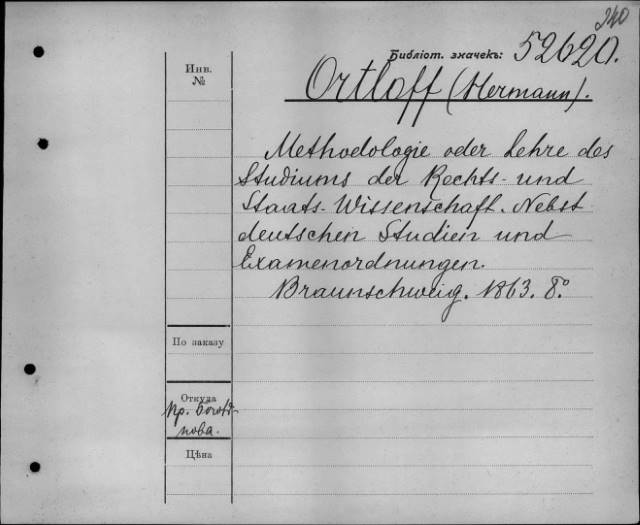 240
Библіот. значекъ: 52620.
Инв.
№
Ortloff (Hermann).
Methodologie oder Lehre des
Studiums der Rechts- und
Staats-Wissenschaft. Nebst
deutschen Studien und
Examenordnungen.
Braunschweig. 1863. 8.°
По заказу
Откуда
Пр.
нова.
Цѣна